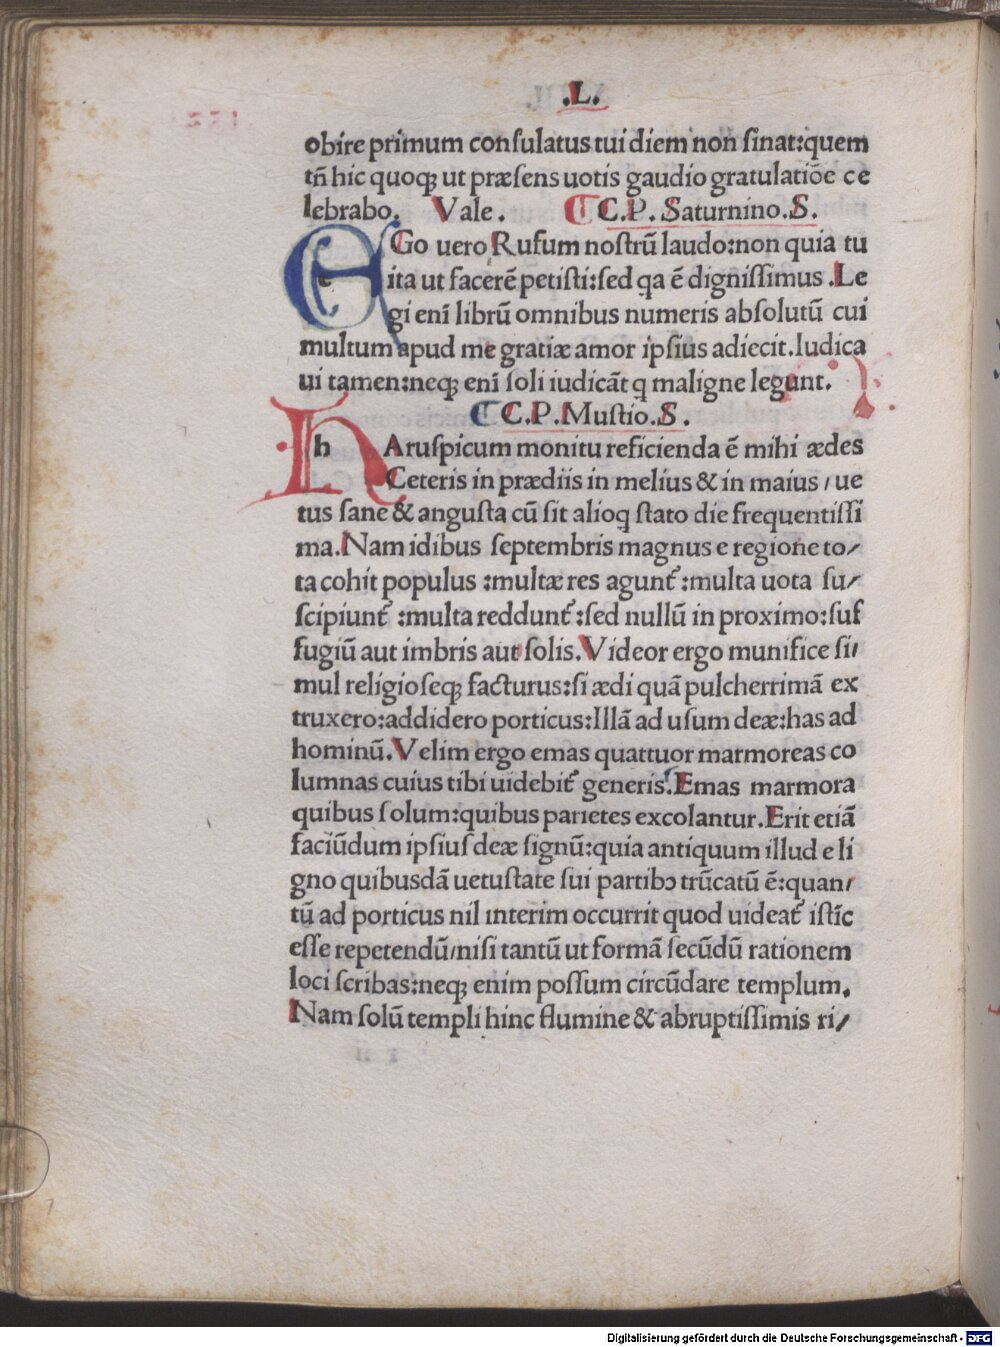 .L.
obire primum conſulatus tui diem non ſinat:quem
tñ hic quoqȝ ut præſens uotis gaudio gratulatiõe ce
lebrabo. Vale. C.P. Saturnino.S.
EGo uero Rufum noſtrũ laudo:non quia tu
ita ut facerẽ petiſti:ſed qa ẽ digniſſimus .Le
gi enĩ librũ omnibus numeris abſolutũ cui
multum apud me gratiæ amor ipſius adiecit.Iudica
ui tamen:neqȝ enĩ ſoli iudicãt q maligne legunt.
C.P.Muſtio.S.
hAruſpicum monitu reficienda ẽ mihi ædes
Ceteris in prædiis in melius & in maius / ue
tus ſane & anguſta cũ ſit alioq ſtato die frequentiſſi
ma.Nam idibus ſeptembris magnus e regione to/
ta cohit populus :multæ res agunt᷑ :multa uota ſu/
ſcipiunt᷑ :multa reddunt᷑ :ſed nullũ in proximo:ſuf
fugiũ aut imbris aut ſolis.Videor ergo munifice ſi/
mul religioſeqȝ facturus:ſi ædi quã pulcherrimã ex
truxero:addidero porticus:Illã ad uſum deæ:has ad
hominũ.Velim ergo emas quattuor marmoreas co
lumnas cuius tibi uidebit᷑ generis.Emas marmora
quibus ſolum:quibus parietes excolantur.Erit etiã
faciũdum ipſiuſ deæ ſignũ:quia antiquum illud e li
gno quibusdã uetuſtate ſui partibꝰ trũcatũ ẽ:quan/
tũ ad porticus nil interim occurrit quod uideat᷑ iſtĩc
eſſe repetendũ/niſi tantũ ut formã ſecũdũ rationem
loci ſcribas:neqȝ enim poſſum circũdare templum.
Nam ſolũ templi hinc flumine & abruptiſſimis ri/
Digitalisierung gefördert durch die Deutsche Forschungsgemeinschaft - DFG